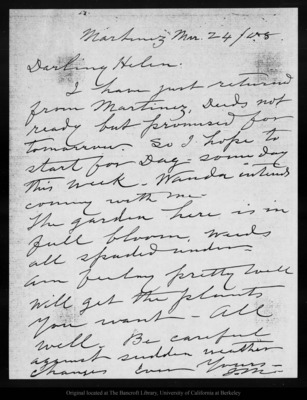 Martinez Mar. 24/08.
Darling Helen.
I have just returned
from Martinez, Deeds not
ready but promised for
tomorrow. So I hope to
start for Dag. some day
this week. Wanda intends
coming with me
The garden here is in
full bloom. Weeds
all spaded under
am feeling pretty well
Will get the plants
you want - All
well. Be careful
against sudden weather
changes Ever Yours
J.M.
Original located at The Bancroft Library, University of California at Berkeley